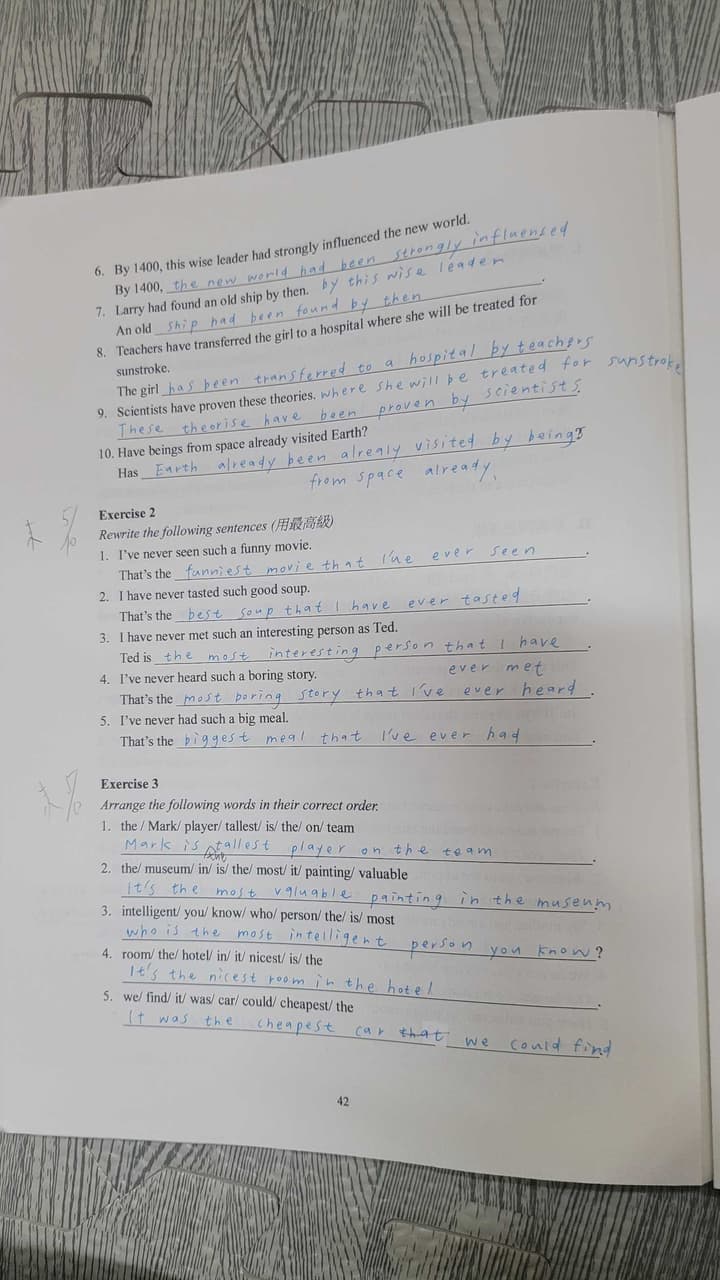 6. By 1400, this wise leader had strongly influenced the new world.
By 1400, the new world had been strongly influensed
by this wise leader
7. Larry had found an old ship by then.
An old ship had been found by then.
8. Teachers have transferred the girl to a hospital where she will be treated for
sunstroke.
The girl has been transferred to a hospital by teachers
where she will be treated for sunstroke
9. Scientists have proven these theories.
These theorise have been proven by scientists.
10. Have beings from space already visited Earth?
Has Earth already been alrealy visited by being?
from space already.
Exercise 2
Rewrite the following sentences (用最高級)
1. I've never seen such a funny movie.
That's the funniest movie that I've ever seen.
2. I have never tasted such good soup.
That's the best soup that I have ever tasted.
3. I have never met such an interesting person as Ted.
Ted is the most interesting person that I have.
ever met
4. I've never heard such a boring story.
That's the most boring story that I've ever heard.
5. I've never had such a big meal.
That's the biggest meal that I've ever had.
Exercise 3
Arrange the following words in their correct order.
1. the / Mark/ player/ tallest/ is/ the/ on/ team
Mark is tallest player on the team.
2. the/ museum/ in/ is/ the/ most/ it/ painting/ valuable
It's the most valuable painting in the museum
3. intelligent/ you/ know/ who/ person/ the/ is/ most
who is the most intelligent person you know?
4. room/ the/ hotel/ in/ it/ nicest/ is/ the
It's the nicest room in the hotel.
5. we/ find/ it/ was/ car/ could/ cheapest/ the
It was the cheapest car that we could find
42